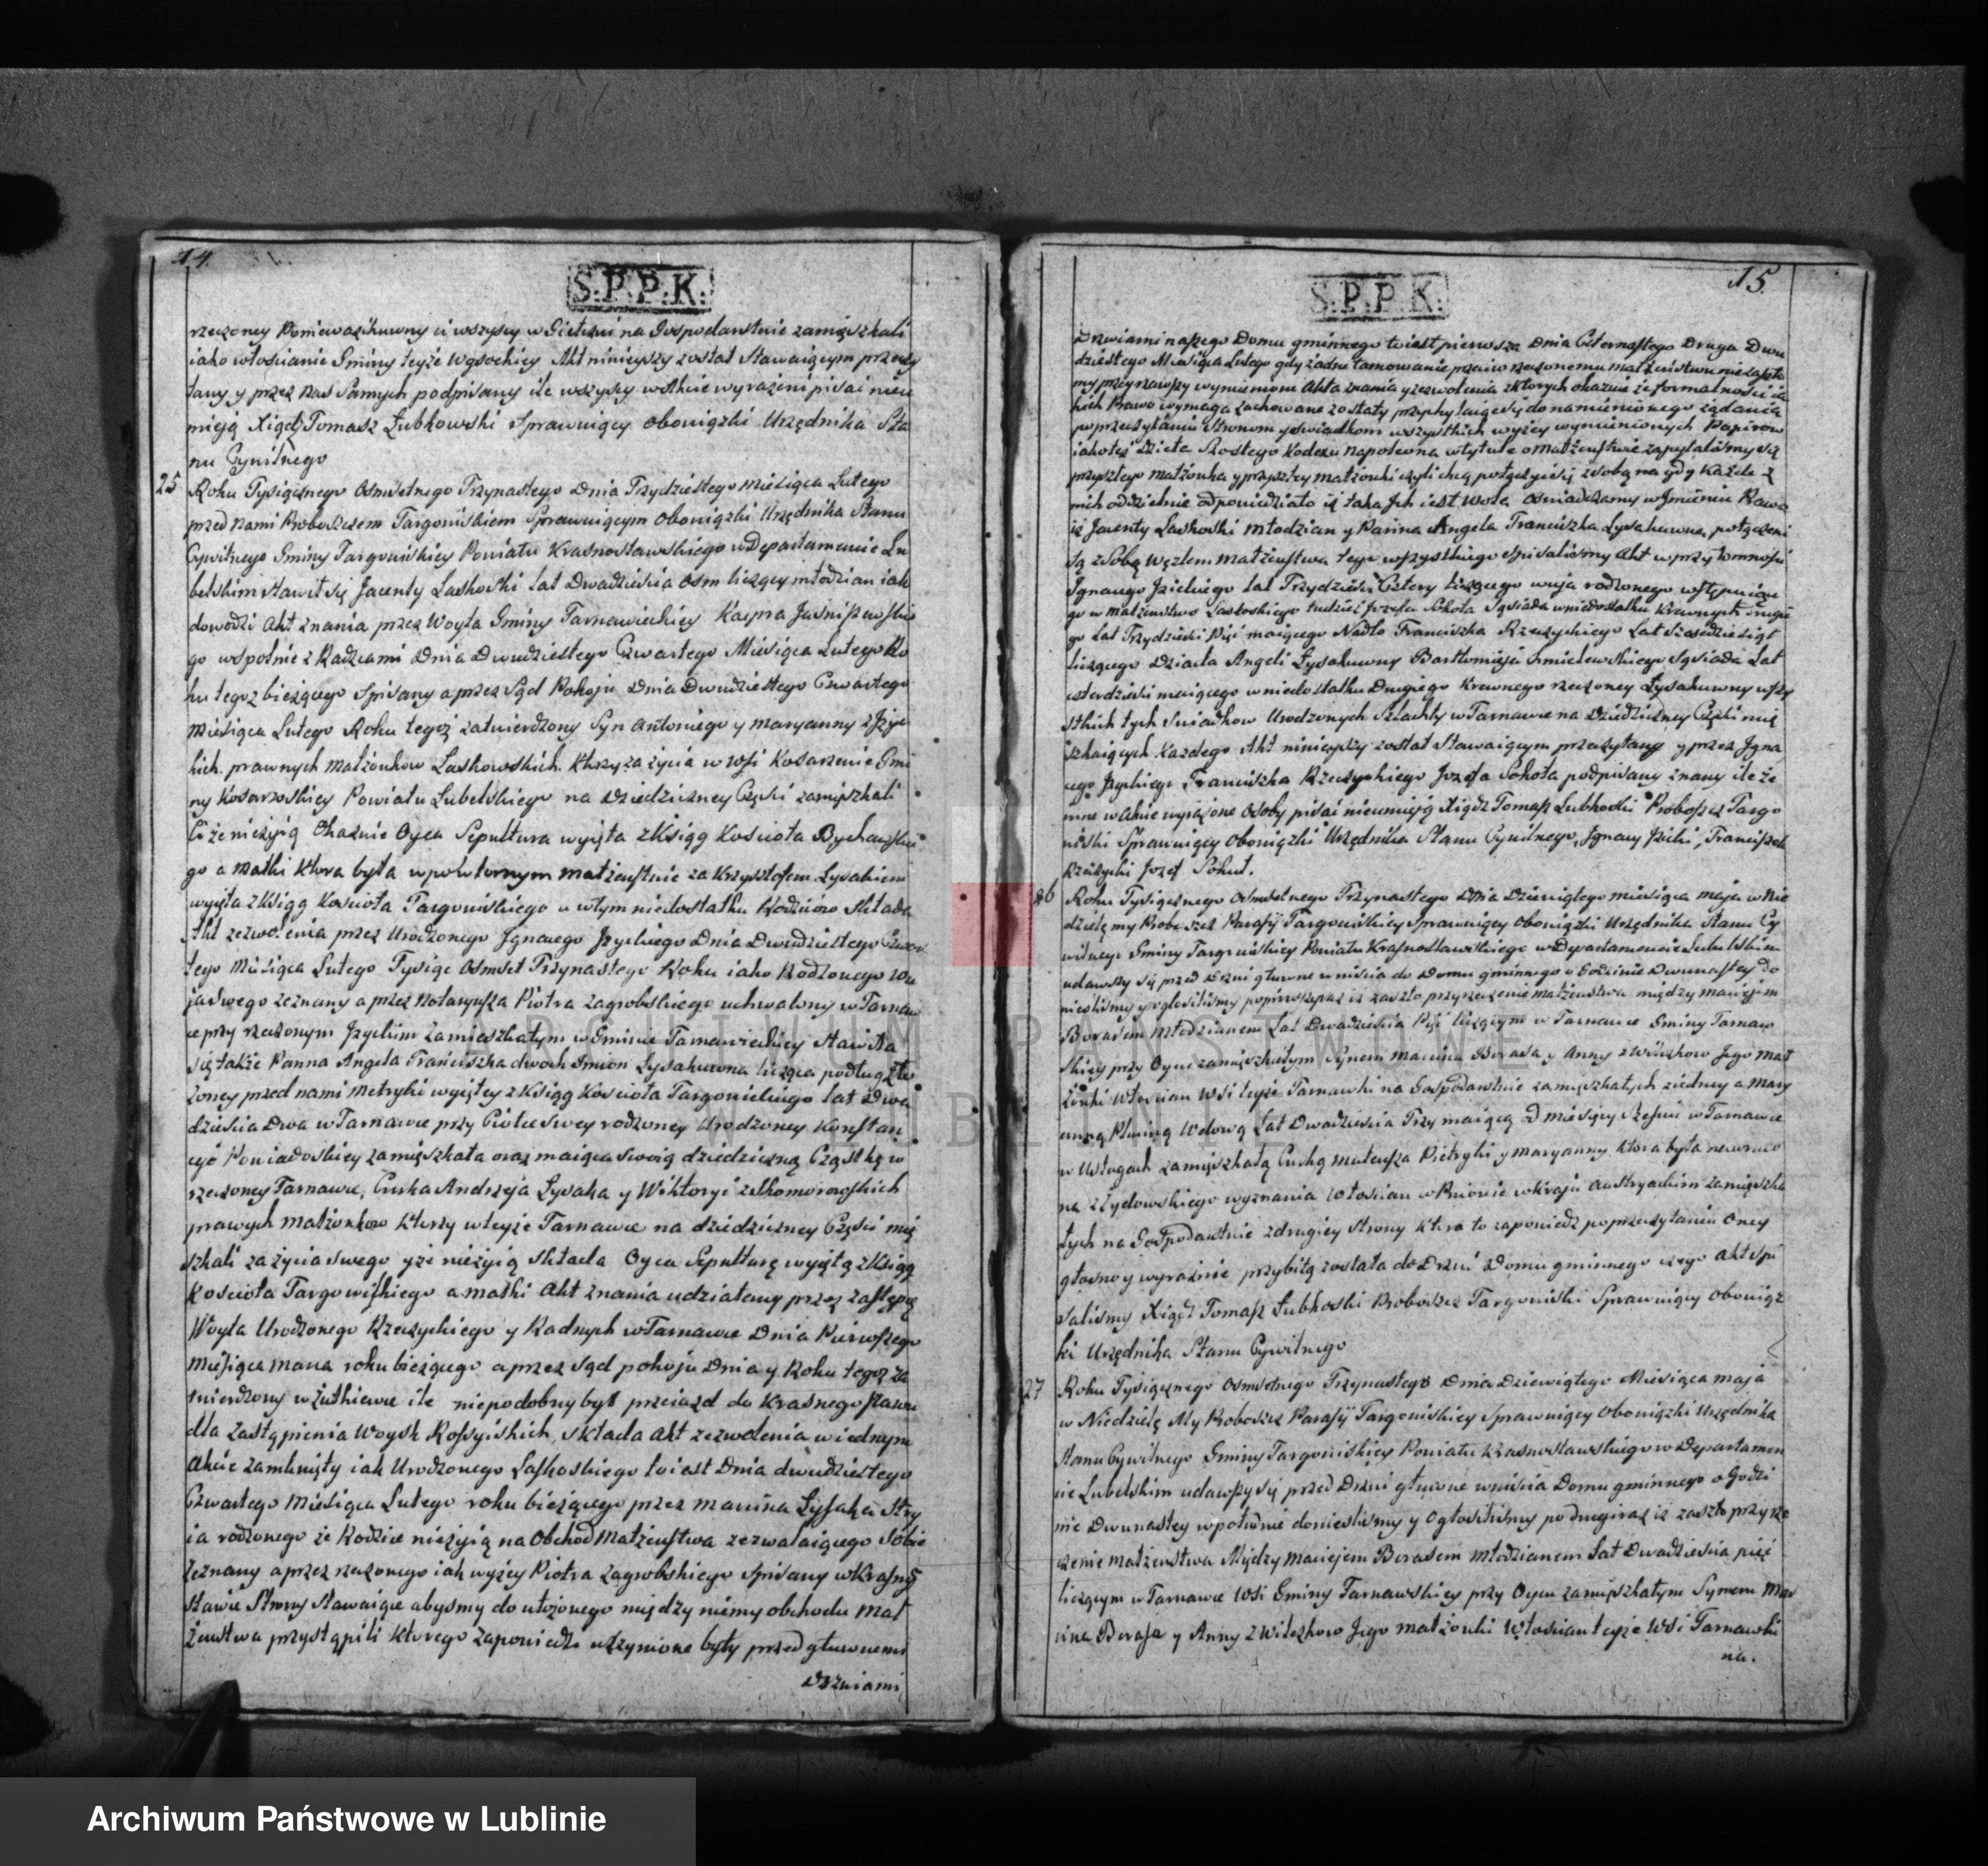 14.
S.P.P.K.
rzeczoney Poniewazihuwny ci wszyscy w na Gospodarstwie zamięszkali
iako włościanie Gminy teyże Wysockiey Akt ninieyszy został Stawaiącym przeczy
tany y przez nas Samych podpisany ile wszyscy w Akcie wyrażeni pisać nieu
mieją Xiądz Tomasz Łubkowski Sprawuiący obowiązki Urzędnika Sta
nu Cywilnego
25 Roku Tysiącznego Osmsetnego Trzynastego Dnia Trzydziestego Miesiąca Lutego
przed nami Proboszczem Targowiskiem Sprawuiącym obowiązki Urzędnika Stanu
Cywilnego Gminy Targowiskiey Powiatu Krasnostawskiego w Departamencie Lu
belskim stawił się Jacenty Laskoski lat Dwadzieścia osm liczący młodzian iak
dowodzi Akt znania przez Woyta Gminy Tarnawieckiey Kacpra
go wspolnie z Radzcami Dnia Dwudziestego Czwartego Miesiąca Lutego Ro
ku tegoż bieżącego Spisany a przez Sąd Pokoju Dnia Dwudziestego Czwartego
Miesiąca Lutego Roku tegoż zatwierdzony Syn Antoniego y Maryanny z Izyc
kich prawnych małżonkow Laskowskich którzy za życia w wsi Kosarzewie Gmi
ny Kosarzoskiey Powiatu Lubelskiego na Dziedziczney Części zamięszkali
Ci że nieżyią Okazuie Oyca Sepultura wyięta z Ksiąg Kościoła Bychawskie
go a matki która była w powtornym małżenstwie za Krzysztofem Łysakiem
wyięta z Ksiąg Kościoła Targowiskiego a w tym niedostatku Rodzicow składa
Akt zezwolenia przez Urodzonego Ignacego Izyckiego Dnia Dwudziestego Czwar
tego Miesiąca Lutego Tysiąc Osmset Trzynastego Roku iako Rodzonego wu
ja swego zeznany a przez Notaryusza Piotra Zagrobskiego uchwalony w Tarnaw
ce przy rzeczonym Izyckim zamieszkałym w Gminie Tarnawieckiey Stawiła
się także Panna Angela Franciszka dwoch Imion Łysakuwna licząca podług zło
żoney przed nami Metryki wyiętey z Ksiąg Kościoła Targowiskiego lat Dwa
dzieścia Dwa w Tarnawce przy Ciotce swey rodzoney Urodzoney Konstan
cyi Poniadoskiey zamięszkała oraz maiąca swoią dziedziczną Cząstkę w
rzeczoney Tarnawce, Curka Andrzeja Łysaka y Wiktoryi z Skomorowskich
prawych małżonkow którzy w teyże Tarnawce na dziedziczney Części mię
szkali za życia swego y że nieżyią składa Oyca Sepulturę wyiętą z Ksiąg
Kościoła Targowiskiego a matki Akt znania udziałany przez zastępcę
Woyta Urodzonego Rzeczyckiego y Radnych w Tarnawce Dnia Pierwszego
Miesiąca marca roku bieżącego a przez Sąd pokoju Dnia y Roku tegoż za
twierdzony w Żułkiewce ile niepodobny był przeiazd do Krasnegostawu
dla zastąpienia Woysk Rossyiskich, składa Akt zezwolenia w iednym
Akcie zamknięty iak Urodzonego Laskoskiego to iest Dnia dwudziestego
Czwartego Miesiąca Lutego roku bieżącego przez marcina Łysaka Stry
ia rodzonego że Rodzice nieżyią na Obchod Małżenstwa zezwalaiącego Sobie
zeznany a przez rzeczonego iak wyżey Piotra Zagrobskiego Spisany w Krasny
stawie Strony Stawaiące abyśmy do ułożonego między niemy obchodu Mał
żenstwa przystąpili którego Zapowiedzi uczynione były przed głównemi
Drzwiami
15.
S.P.P.K.
Drzwiami naszego Domu gminnego to iest pierwsza Dnia Czternastego Druga Dwu
dziestego Miesiąca Lutego gdy żadne tamowanie przeciw rzeczonemu małżeństwu niezaszło
my przeyrzawszy wymienione Akta znania y zezwolenia z których okazuie że formalności ia
kich Prawo wymaga zachowane zostały przychylaiąc się do namienionego żądania
po przeczytaniu Stronom y świadkom wszystkich wyżey wymienionych Papirow
iakoteż Działu Szostego Kodexu napoleona w tytule o małżenstwie zapytaliśmy się
przyszłego małżonka y przyszłey małżonki czyli chcą połączyć się z sobą na gdy każde z
nich oddzielnie odpowiedziało iż taka Ich iest wola oświadczamy w Imieniu Prawa
iż Jacenty Laskoski młodzian y Panna Angela Franciszka Łysakuwna połączeni
są z Sobą węzłem małżenstwa tego wszystkiego spisaliśmy Akt w przytomności
Ignacego Izickiego lat Trzydzieści Cztery liczącego wuja rodzonego wstępuiące
go w małżenstwo Laskoskiego tudzież Jozefa Sokoła Sąsiada w niedostatku Krewnych inne
go Lat Trzydzieści Pięć maiącego Nadto Franciszka Rzeczyckiego Lat Szesdziesiąt
liczącego Dziada Angeli Łysakuwny Bartłomieja Smielewskiego Sąsiada Lat
czterdzieści maiącego w niedostatku Drugiego Krewnego rzeczoney Łysakuwny wszy
stkich tych Świadkow Urodzonych Szlachty w Tarnawce na Dziedziczney Części mię
szkaiących każdego Akt ninieyszy został Stawaiącym przeczytany y przez Igna
cego Izyckiego Franciszka Rzeczyckiego Jozefa Sokoła podpisany znany ile że
inne w Akcie wyrażone Osoby pisać nieumieją Xiądz Tomasz Łubkoski Proboszcz Targo
wiski Sprawuiący Obowiązki Urzędnika Stanu Cywilnego, Ignacy Izicki, Franciszek
Rzeczycki Jozef Sokuł.
26 Roku Tysiącznego Osmsetnego Trzynastego Dnia Dziewiątego miesiąca maja w Nie
dzielę my Proboszcz Parafii Targowiskiey Sprawuiący Obowiązki Urzędnika Stanu Cy
wilnego Gminy Targowiskiey Powiatu Krasnostawskiego w Departamencie Lubelskim
udawszy się przed Drzwi głowne wniścia do Domu gminnego o Godzinie Dwunastey Do
nieśliśmy y ogłosiliśmy po pierwszy raz iż zaszło przyrzeczenie małżenstwa między maciejem
Borasem Młodzianem Lat Dwadzieścia Pięć liczącym w Tarnawce Gminy Tarnaw
skiey przy Oycu zamięszkałym Synem Marcina Borasa y Anny z Jego Mał
żonki Włościan Wsi teyże Tarnawki na Gospodarstwie zamięszkałych z iedney a Mary
anną Wdową Lat Dwadzieścia Trzy maiącą miesięcy Sześciu w Tarnawce
w Usługach zamięszkałą Curką Mateusza Pietryki y maryanny ktora była nawruco
na z Żydowskiego wyznania włościan w w kraju Austryackim zamięszka
łych na Gospodarstwie z drugiey Strony ktora to zapowiedz po przeczytaniu Oney
głośno y wyraźnie przybitą została do Drzwi Domu gminnego czego Akt spi
saliśmy Xiądz Tomasz Łubkoski Proboszcz Targowiski Sprawuiący obowiąz
ki Urzędnika Stanu Cywilnego
27 Roku Tysiącznego Osmsetnego Trzynastego Dnia Dziewiątego Miesiąca maja
w Niedzielę My Proboszcz Parafii Targowiskiey Sprawuiący Obowiązki Urzędnika
Stanu Cywilnego Gminy Targowiskiey Powiatu Krasnostawskiego w Departamen
cie Lubelskim udawszy się przed Drzwi głowne wniścia Domu gminnego o Godzi
nie Dwunastey w południe donieśliśmy y Ogłosiliśmy po drugi raz iż zaszło przyrze
czenie małżenstwa Między Maciejem Borasem Młodzianem Lat Dwadzieścia pięć
liczącym w Tarnawce Wsi Gminy Tarnawskiey przy Oycu zamięszkałym Synem Mar
cina Borasa y Anny z Jego małżonki Włościan teyże Wsi Tarnawki
na.
ARCHIWUM PAŃSTWOWE
W LUBLINIE
Archiwum Państwowe w Lublinie